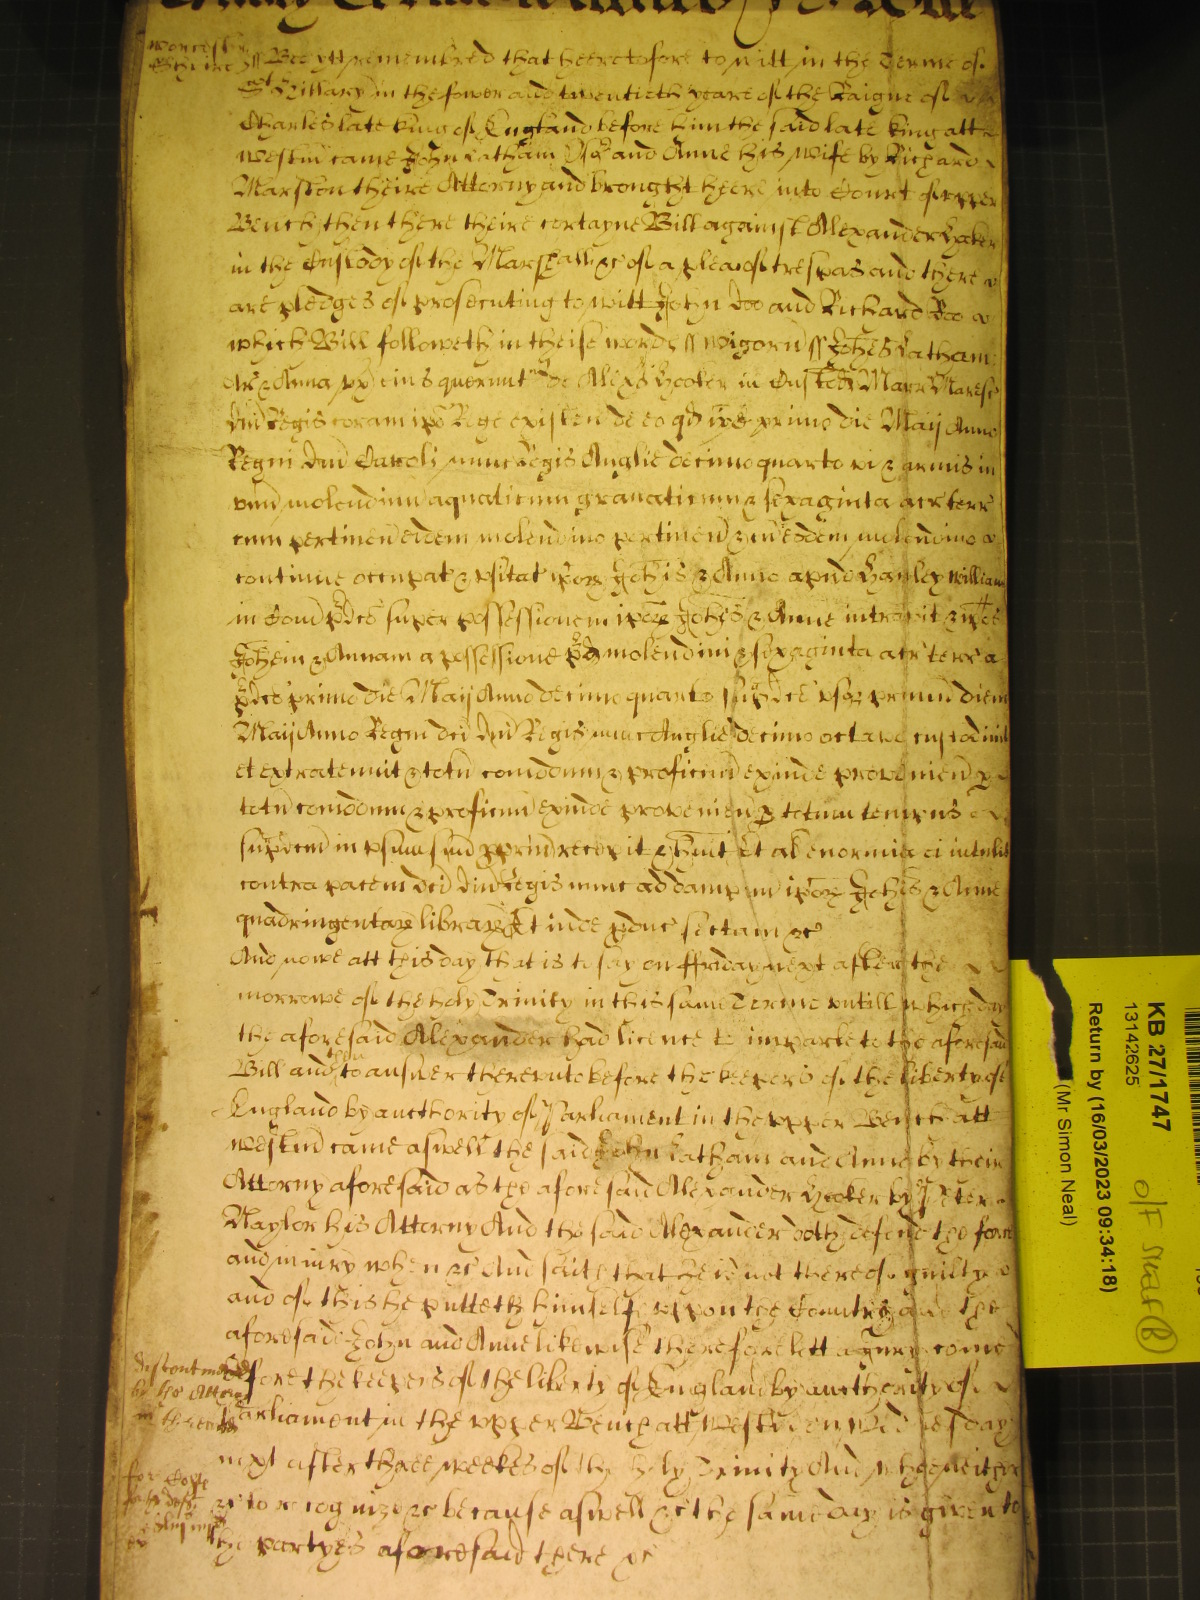 Worcester
Shire ss Bee ytt remembred that heeretofore to witt in the Terme of
St Hillary in the fower and twentieth yeare of the Raigne of
Charles late king of England before him the said late king att
Westm came John Latham Esq and Anne his wife by Richard
Marston theire Attorny and brought heere into Court of upper
Bench then there theire certayne Bill against Alexander Hooker
in the Custody of the Marshall &c of a plea of trespas and there
are pledges of prosecuting to witt John Doo and Richard Roo
which Bill followeth in theise words ss Wigorn ss Johes Latham
Ar & Anna ux eius querunt de Alexo Hooker in Custod Marr Maresc
dni Regis coram ipo Rege existen de eo qd ipe primo die Maij Anno
Regni dni Caroli nunc Regis Anglie decimo quarto vi & armis in
unu molendinu aquaticum granaticum & sexaginta acr terr
cum pertinen eidem molendino pertinen & cu eodem molendino
continue occupat & usitat ipor Johis & Anne apud Hanley William
in Com pdco super possessionem ipor Johis & Anne intravit & ipos
Johem & Annam a possessione pd molendini & sexaginta acr terr a
pdco primo die Maij Anno decimo quarto supdco usq primu diem
Maij Anno Regni dci dni Regis nunc Anglie decimo octavo custodivit
et extratenuit & totu comodum & proficuu exinde provenien p
totu comodum & proficuu exinde provenien p totum tempus
supdcm in usum suu ppriu recepit & huit Et al enormia ei intulit
contra pacem dci dni Regis nunc ad dampnu ipor Johis & Anne
quadringentar librar Et inde pduc sectam &c
And nowe att this day that is to say on ffriday next after the
morrowe of the holy Trinity in this same Terme untill which day
the aforesaid Alexander had licence to imparle to the aforesaid
Bill and then to answer thereunto before the keepers of the liberty of
England by aucthority of Parliament in the upper Bench att
Westm came aswell the said John Latham and Anne by their
Attorny aforesaid as the aforesaid Alexander Hooker by Peter
Naylor his Attorny And the said Alexander doth defend the force
and iniury when &c And saith that he is not thereof guilty
and of this he putteth himself uppon the Countrey and the
aforesaid John and Anne likewise therefore lett a Jury come
before the keepers of the liberty of England by aucthority of
Parliament in the upper Bench att Westm on Wednesday
next after three weekes of the holy Trinity And who neither
&c to recognize &c because aswell &c the same day is given to
the partyes aforesaid there &c
discontinued
by the Attorn
KB 27/1747
13142625
Return by (16/03/2023 09:34:18)
(Mr Simon Neal)